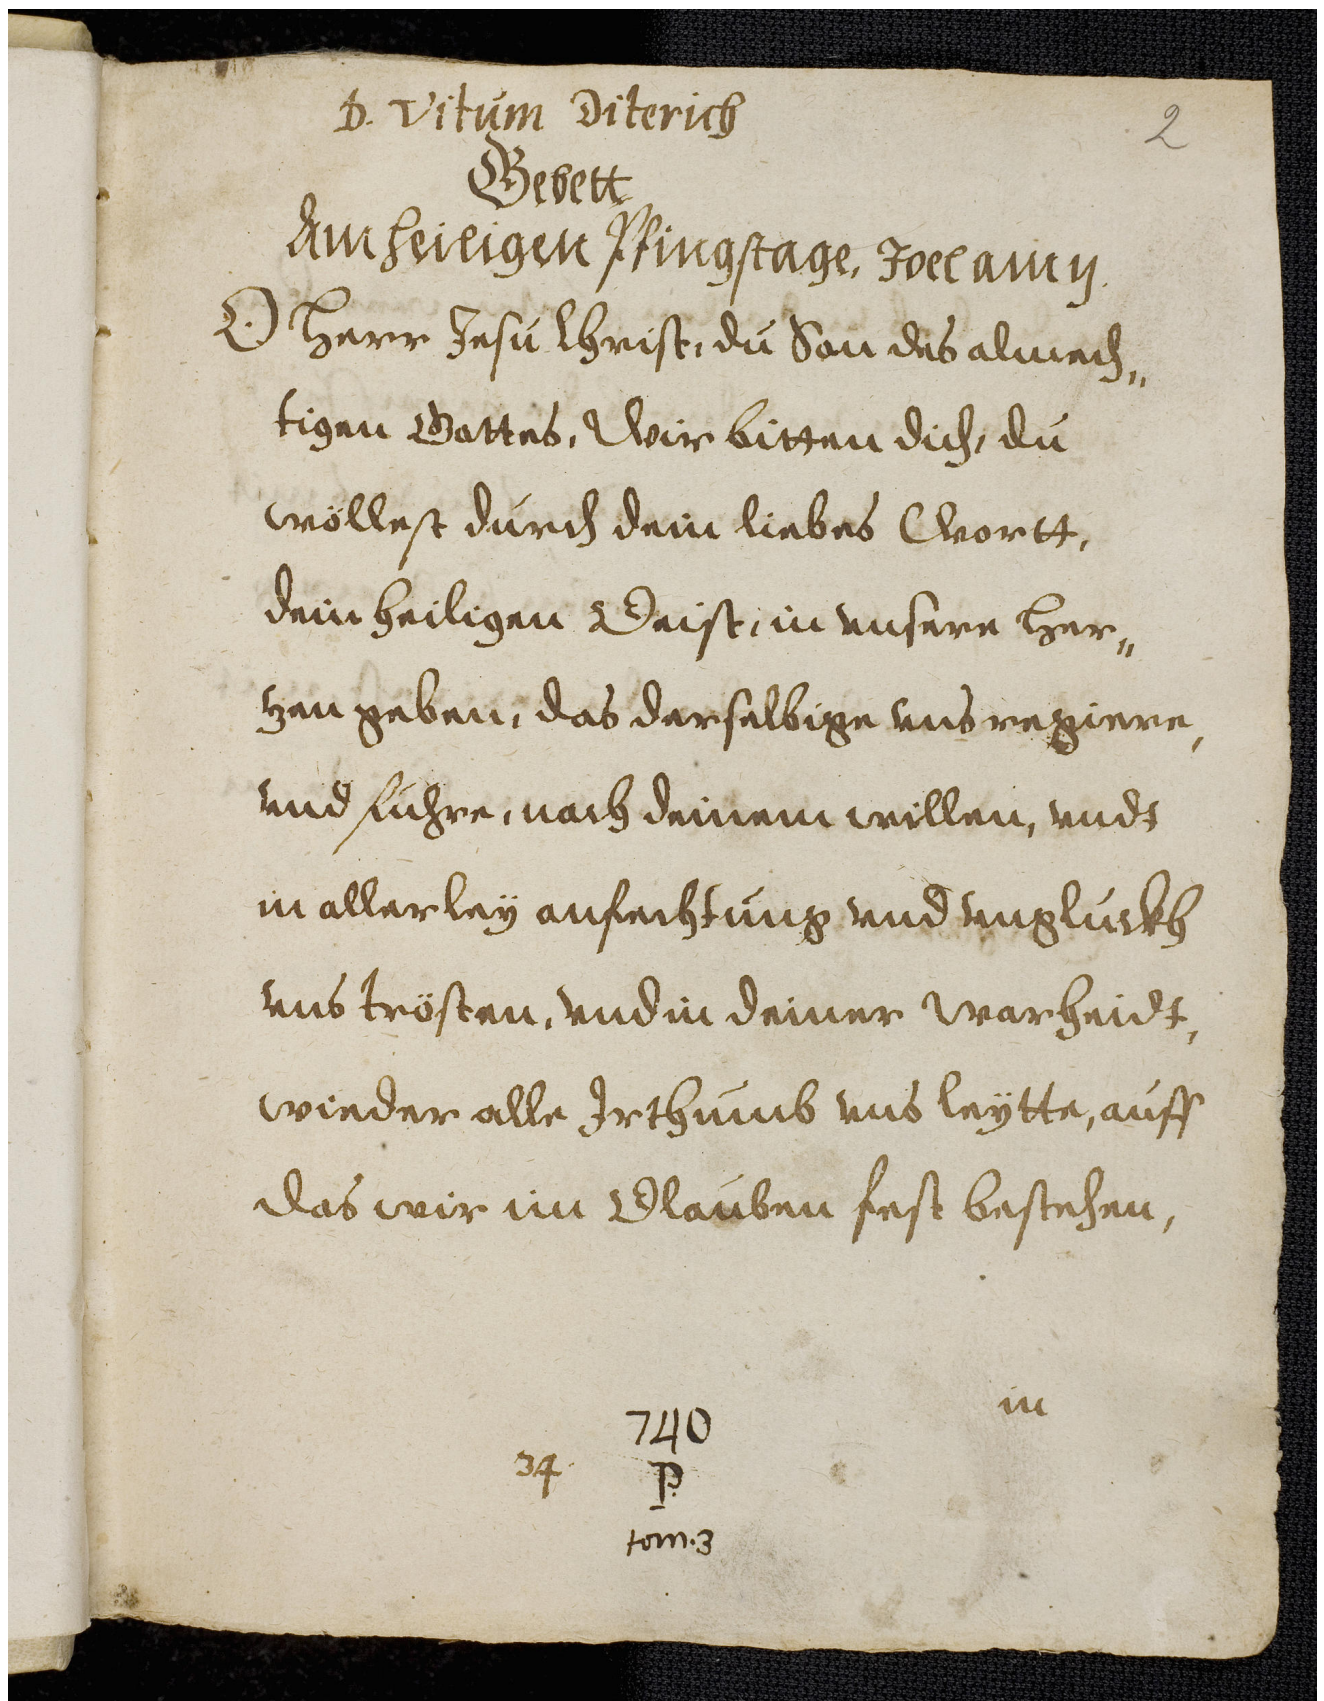 D. Vitum Diterich
2
Gebett
Am heiligen Pfingstage. Joel am ij.
O Herr Jesu Christ, du Son des almech„
tigen Gottes, Wir bitten dich, du
wöllest durch dein liebes Wortt,
dein heiligen Geist, in vnsere Her„
tzen geben, das derselbige vns regiere,
vnd fuhre, nach deinem willen, vndt
in allerley anfechtung vnd vngluckh
vns trösten, vnd in deiner Warheidt,
wieder alle Irthumb vns leytte, auff
das wir im Glauben fest bestehen,
in
740
34.
P.
tom. 3